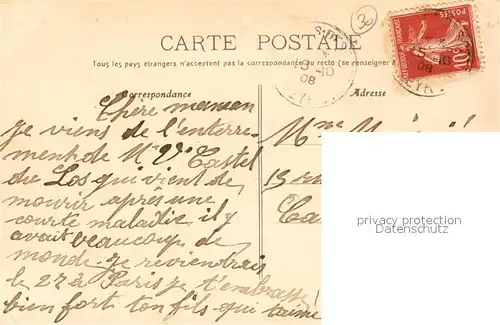 CARTE POSTALE
Tous les pays étrangers n'acceptent pas la correspondance au recto (se renseigner
Correspondance
Adresse
30
POSTES
10
15-10
08
Chère maman
je viens de l'enterre-
ment de Mr Vr Castel
du Los qui vient de
mourir après une
courte maladie, il y
avait beaucoup de
monde. je reviendrai
le 27 à Paris je t'embrasse
bien fort ton fils qui t'aime
Mme
13
privacy protection
Datenschutz